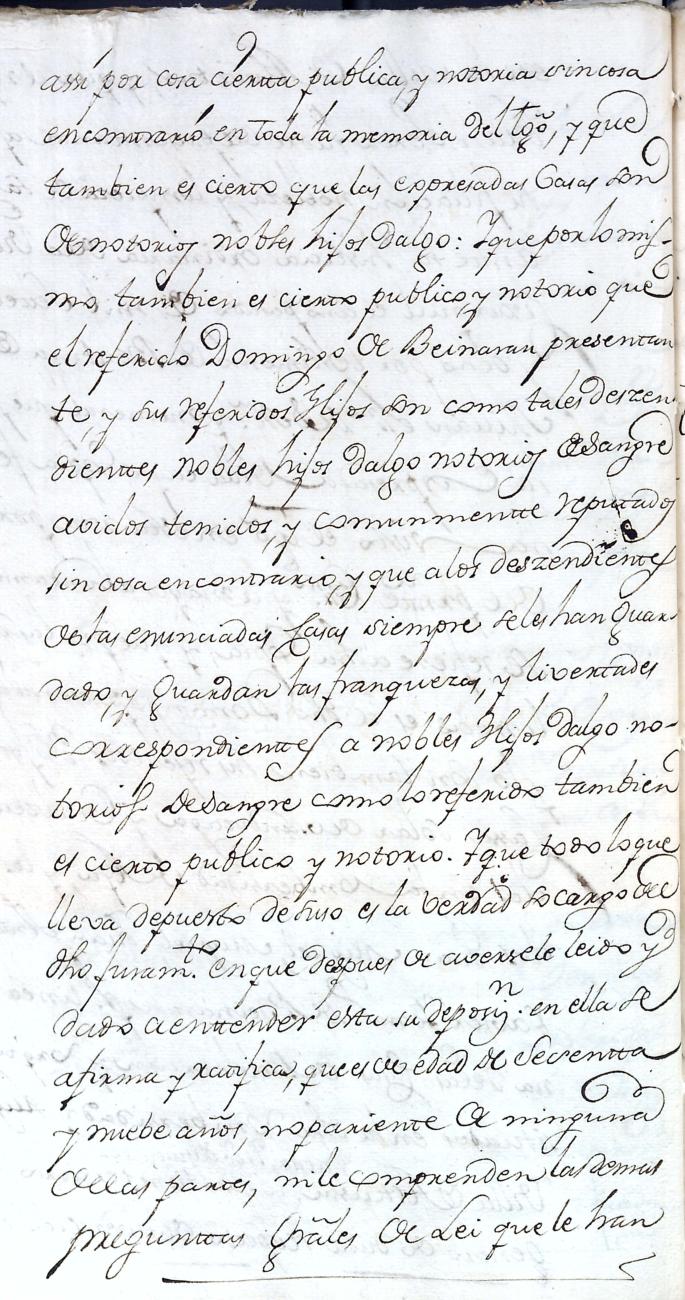 assi por cosa cierta publica, y notoria sin cosa
encontrario en toda la memoria del tgo, y que
tambien es cierto que las expresadas Casas son
de notorios nobles hijos dalgo: Y que por lo mis-
mo tambien es cierto publico, y notorio que
el referido Domingo de Beinaran presentan
te, y sus referidos Hijos son como tales deszen
dienttes nobles hijos dalgo notorios de sangre
avidos tenidos, y comunmentte reputados
sin cosa encontrario, y que a los deszendientes
de las enunciadas Casas siempre se les han guar
dado, y guardan las franquezas, y livertades
correspondienttes a nobles Hijos dalgo no-
torios de sangre como lo referido tambien
es cierto publico y notorio. Y que todo lo que
lleva depuesto de suso es la verdad so cargo de
dho juramto. en que despues de averse le leido y
dado a enttender esta su deposizn. en ella se
afirma y ratifica, que es de edad de
y nuebe años, no pariente de ninguna
de las partes, ni le comprenden las demas
preguntas Grales de Lei que le han